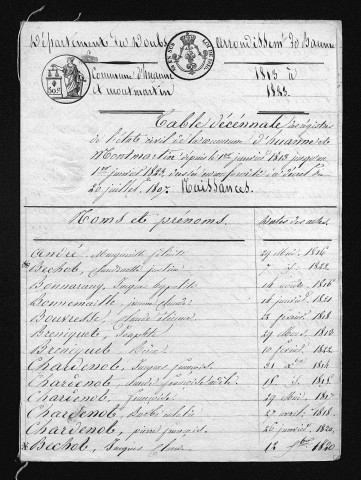 Département du Doubs arrondissem.t de Baume
Commune d'huanne
et montmartin
1813 à
1823.
Table décennale des registres
de l'état civil de la commune d'huanne et
Montmartin depuis le 1er janvier 1813 jusqu'au
1er janvier 1823, dressée en conformité du décret du
20 juillet 1807. Naissances.
Noms et prénoms. Dates des actes
André, Marguerite 29 Mai 1816
Bechet, justine 1822
Bonnarang, hippolite 14 1816
Bonnemaille, jeanne claude 14 janvier 1821
Bouveresse, Claude étienne 22 février 1818
Breniquet, Joseph 29 Mars 1813
Breniquet, 10 février 1822
Chardenot, Jacques françois 31 Xbre 1814
Chardenot, 18 1815
Chardenot, françoise 29 Mai 1817
Chardenot, 27 avril 1818
Chardenot, pierre françois 26 janvier 1820
Bechet, Jacques 12 1820